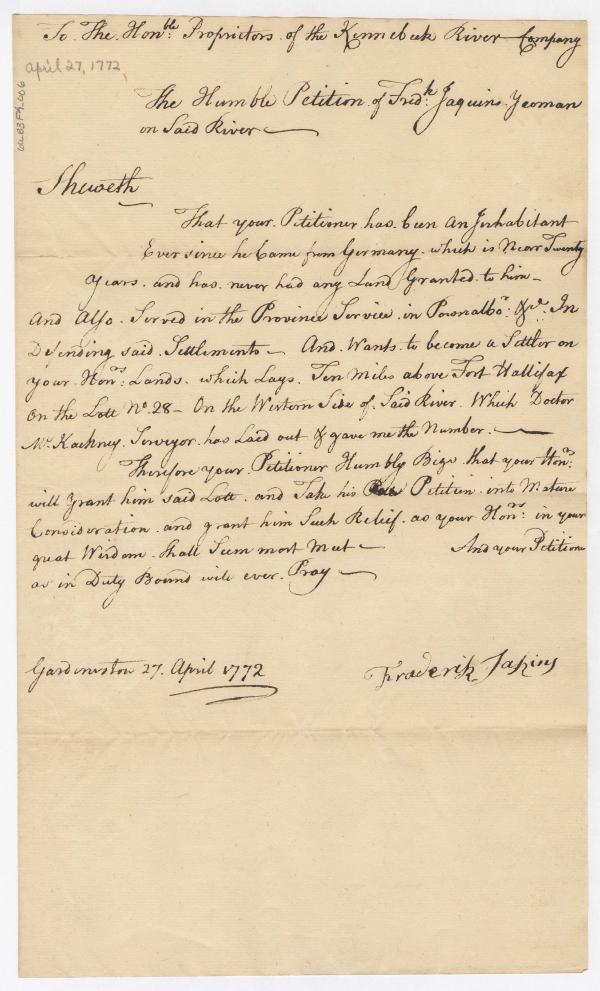 To The Hon.ble Proprietors of the Kennebeck River Company
April 27, 1772
The Humble Petition of Fred.k Jaquins Yeoman
on Said River
Sheweth
That your Petitioner has been an Inhabitant
Ever since he Came from Germany which is Near Twenty
Years and has never had any Land Granted to him
And Also Served in the Province Service in Pownalbo.r &c. In
Defending said Settlements And Wants to become a Settler on
your Hon.rs Lands which Lays Ten Miles above Fort Hallifax
On the Lott No. 28 - On the Western Side of Said River Which Doctor
Mc Kachney Surveyor has Laid out & gave me the Number.
Therefore your Petitioner Humbly Bigs that your Hon.rs
will Grant him said Lott and Take his Petition into Mature
Consideration and grant him Such Relief as your Hon.rs in your
great Wisdom Shall Seem most Meet And your Petition
as in Duty Bound will ever Pray
Gardinerston 27. April 1772
Fraderik Jakins